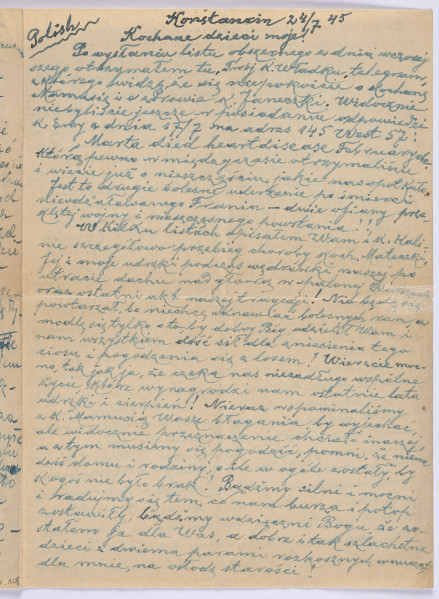 Polish
Konstancin 24/7 45
Kochane dzieci moje!
Po wysłaniu listu obszernego z dnia wczoraj
szego otrzymałem tu, Twój K. Władku, telegram,
z którego widzę, że się niepokoicie o Kochaną
Mamusię i o zdrowie K. Janeczki. Widocznie
nie byliście jeszcze w posiadaniu odpowiedzi
K. Ewy z dnia 17/7 na adres 145 West 52:
„Marta died heart disease February",
którą pewno w międzyczasie otrzymaliście
i wiecie już o nieszczęściu, jakie nas spotkało.
Jest to drugie bolesne uderzenie po śmierci
nieodżałowanego Frania - dwie ofiary prze
klętej wojny i nieszczęsnego powstania!
W kilku listach opisałem Wam i K. Hali-
nie szczegółowo przebieg choroby Koch. Mateczki,
Jej i moje udręki podczas wędrówki naszej po
utracie dachu nad głową w spalonej Warszawie
oraz ostatni akt naszej tragedji! Nie będę się
powtarzał, bo nie chcę odnawiać bolesnych ran, a
modlę się tylko o to, by dobry Bóg udzielił Wam i
nam wszystkim dość sił dla zniesienia tego
ciosu i pogodzenia się z losem! Wierzcie moc-
no, tak jak ja, że czeka nas niezadługo wspólne
życie, które wynagrodzi nam ostatnie lata
udręki i cierpień! Nieraz wspominaliśmy
z K. Mamusią Wasze błagania by wyjechać,
ale widocznie przeznaczenie chciało inaczej,
a z tym musimy się pogodzić, pomni, że niema
dziś domu i rodziny, o ile w ogóle zostały, by
kogoś nie było brak! Bądźmy silni i mocni
i radujmy się tem, co nam burza i potop
zostawiły, bądźmy wdzięczni Bogu, że zo-
stałem ja dla Was, a dobrze i tak szlachetne
dzieci z dwiema parami rozkosznych wnucząt
dla mnie, na młode starości!